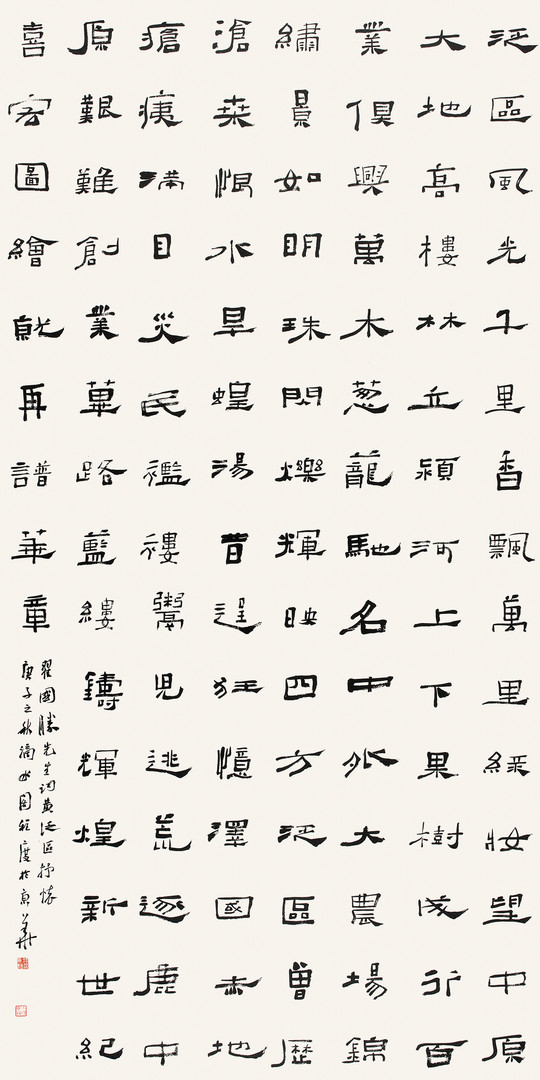 泛區風光千里香飄萬里綠妝望中原
大地高樓林立潁河上下果樹成行百
業俱興萬木葱蘢馳名中外大農場錦
繡景如明珠閃爍輝映四方泛區曾歷
滄桑恨水旱蝗湯昔逞狂憶澤國赤地
瘡痍滿目災民襤褸鬻兒逃荒逐鹿中
原艱難創業蓽路藍縷鑄輝煌新世紀
喜宏圖繪就再譜華章
翟國勝先生詞黃泛區抒懷
庚子之秋於京華